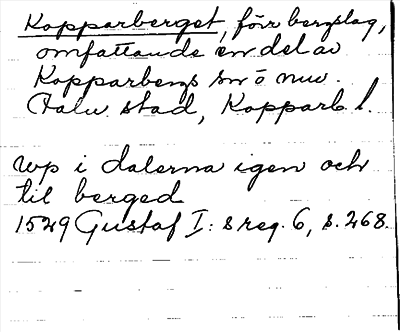 Kopparberget, förr bergslag,
omfattande en del av
Kopparbergs sn o nuv.
Falu stad, Kopparb. l.
wp i dalerna igen och
til berged
1529 Gustaf I: s reg. 6, s. 268.